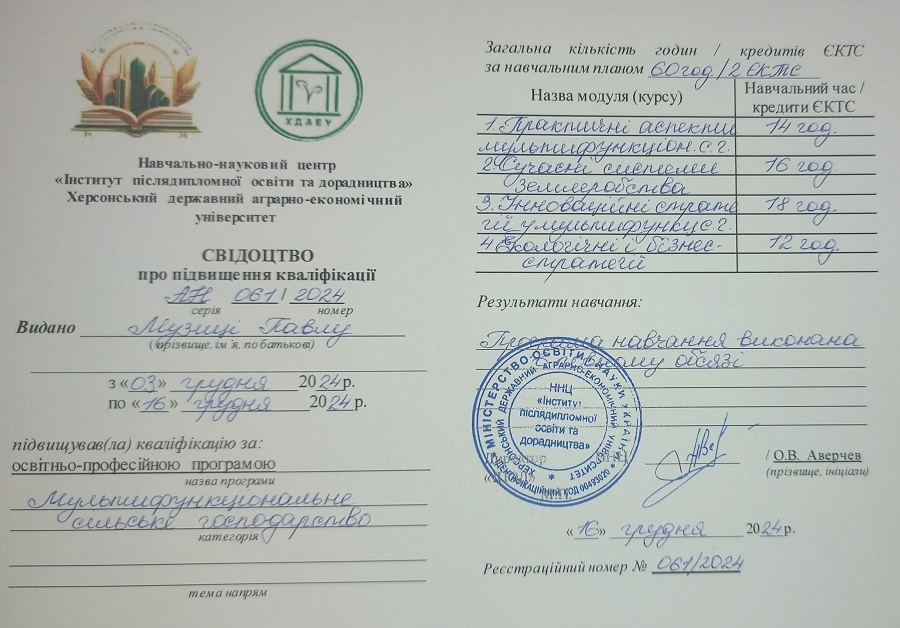 ХДАЕУ
Навчально-науковий центр
«Інститут післядипломної освіти та дорадництва»
Херсонський державний аграрно-економічний
університет
СВІДОЦТВО
про підвищення кваліфікації
АН 061 / 2024
серія номер
Видано Музиці Павлу
(прізвище, ім’я, по батькові)
з «03» грудня 2024 р.
по «16» грудня 2024 р.
підвищував(ла) кваліфікацію за:
освітньо-професійною програмою
назва програми
Мультифункціональне
сільське господарство
категорія
тема напрям
Загальна кількість годин / кредитів ЄКТС
за навчальним планом 60 год / 2 ЄКТС
Назва модуля (курсу) Навчальний час /
кредити ЄКТС
1. Практичні аспекти 14 год.
мультифункціон. с. г.
2. Сучасні системи 16 год.
Землеробства
3. Інноваційні страте 18 год.
гії у мультифункц с. г.
4 Екологічні і бізнес- 12 год.
стратегії
Результати навчання:
Програма навчання виконана
обсязі
МІНІСТЕРСТВО ОСВІТИ І НАУКИ УКРАЇНИ
ХЕРСОНСЬКИЙ ДЕРЖАВНИЙ АГРАРНО-ЕКОНОМІЧНИЙ УНІВЕРСИТЕТ
ІДЕНТИФІКАЦІЙНИЙ КОД 00493020
ННЦ
«Інститут
післядипломної
освіти та
дорадництва»
/ О.В. Аверчев
(прізвище, ініціали)
«16» грудня 2024 р.
Реєстраційний номер № 061/2024